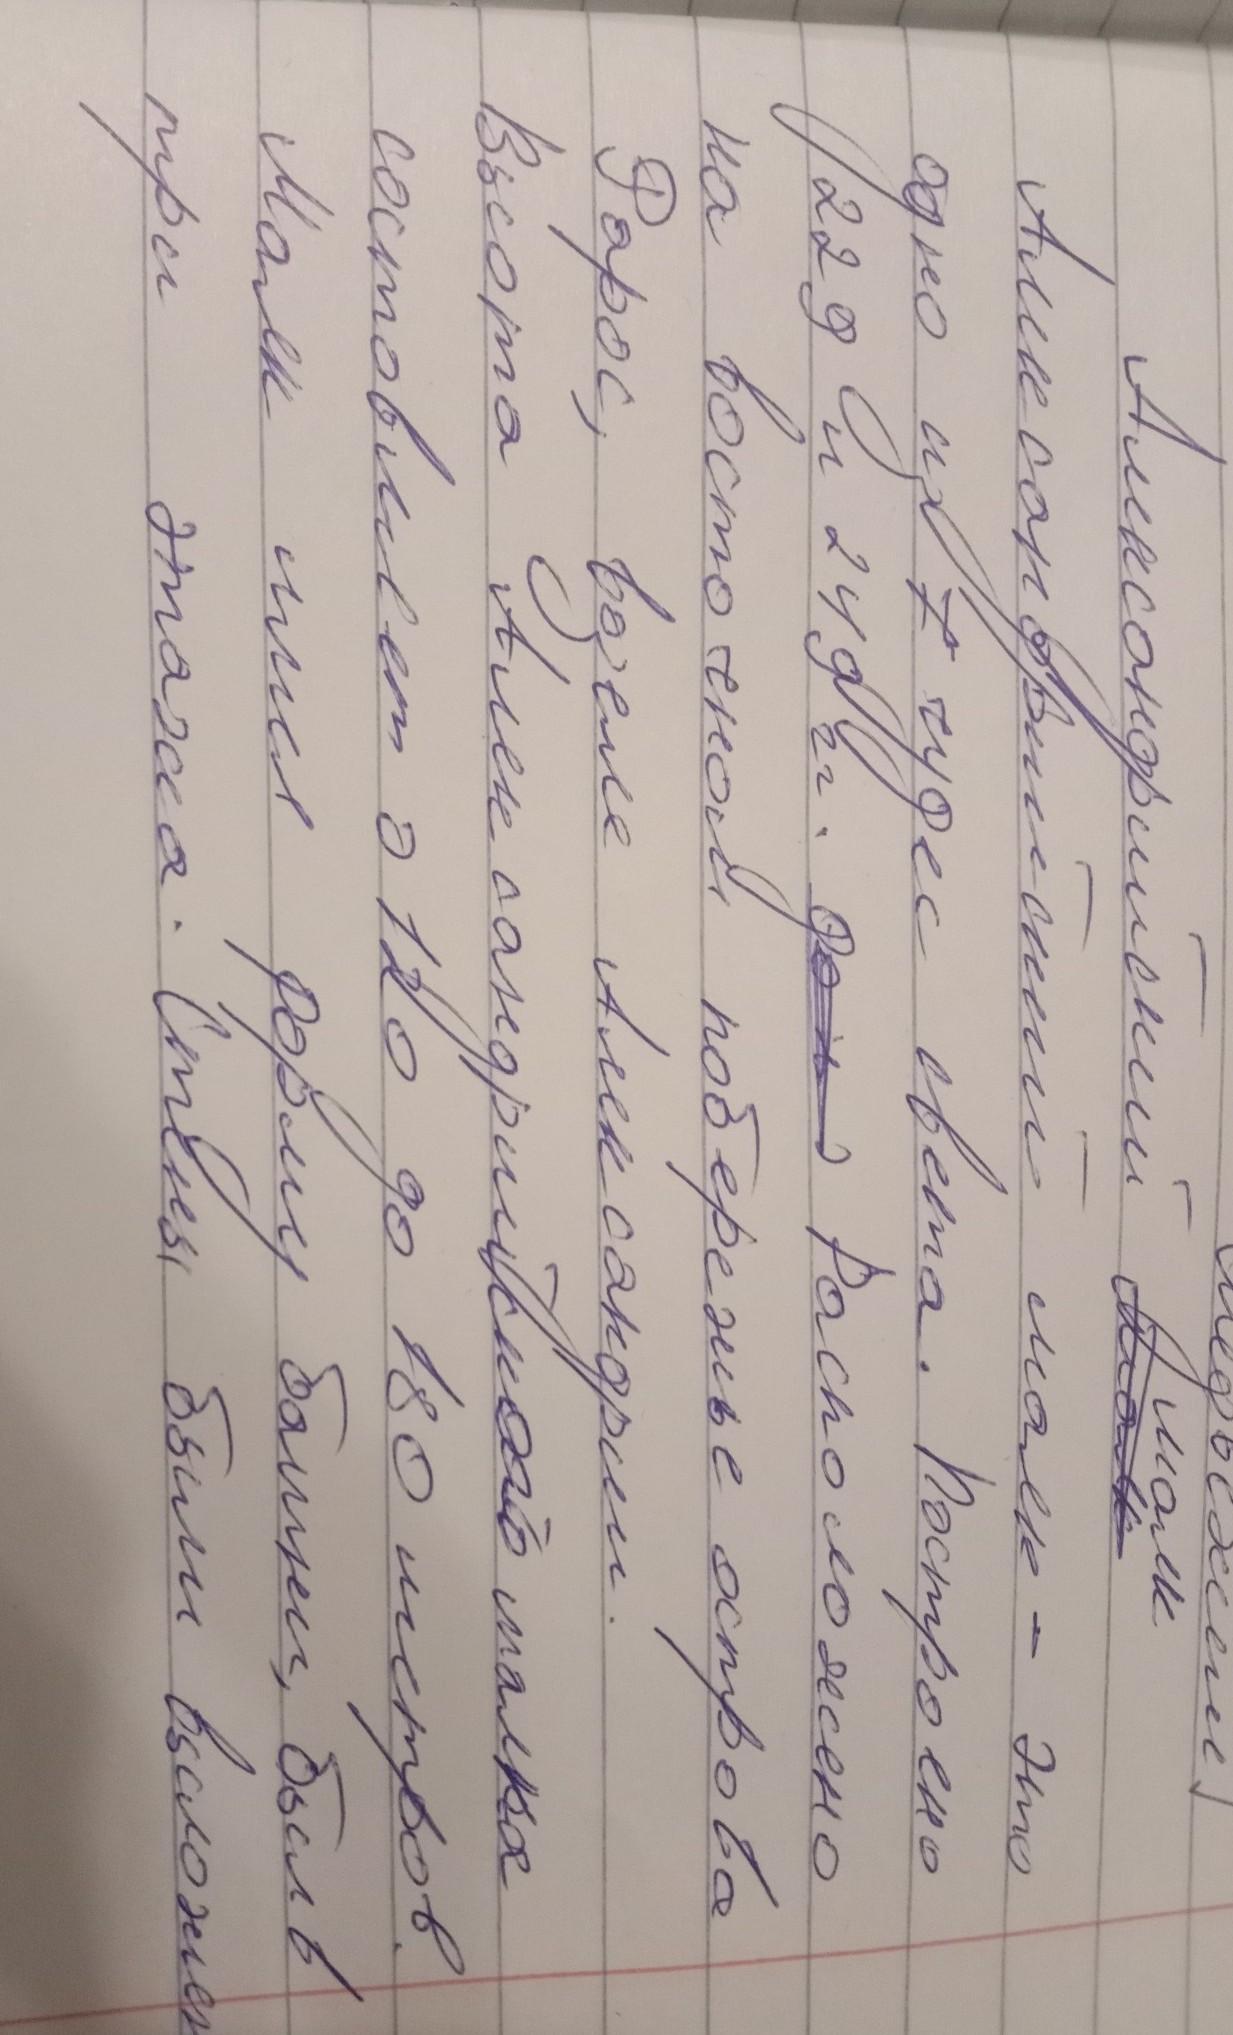 Александрийский маяк
Алексондрийский маяк - это
одно их 7 чудес света. Построено
229 и 249 г. Расположено
на восточной побережье острова
Фарос, возеле Александрии.
Высота Александрийского маяка
составляет э 120 до 180 метров.
Маяк имел форму башни, был в
три этажа. Стены были выложен